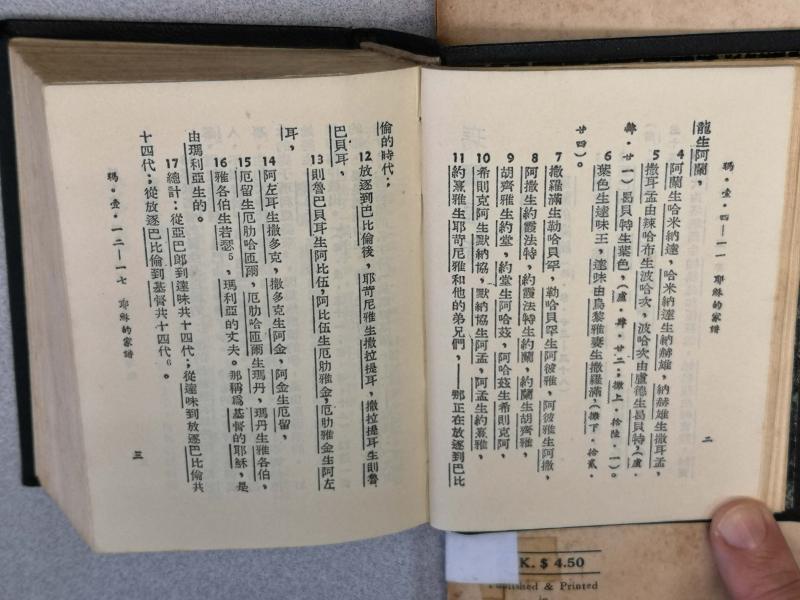 瑪・壹・四—一一　耶穌的家譜　二
龍生阿蘭，
4 阿蘭生哈米納達，哈米納達生納赫雄，納赫雄生撒耳孟，
5 撒耳孟由辣哈布生波哈次，波哈次由盧德生曷貝特，（盧・
肆・廿一）曷貝特生葉色，（盧・肆・廿二；撒上・拾陸・一）。
6 葉色生達味王，達味由烏黎雅妻生撒羅滿，（撒下・拾貳・
廿四）。
7 撒羅滿生勒哈貝罕，勒哈貝罕生阿彼雅，阿彼雅生阿撒，
8 阿撒生約霞法特，約霞法特生約蘭，約蘭生胡齊雅，
9 胡齊雅生約堂，約堂生阿哈茲，阿哈茲生希則克阿，
10 希則克阿生默納協，默納協生阿孟，阿孟生約熹雅，
11 約熹雅生耶苛尼雅和他的弟兄們，——那正在放逐到巴比
倫的時代；
12 放逐到巴比倫後，耶苛尼雅生撒拉提耳，撒拉提耳生則魯
巴貝耳，
13 則魯巴貝耳生阿比伍，阿比伍生厄肋雅金，厄肋雅金生阿左
耳，
14 阿左耳生撒多克，撒多克生阿金，阿金生厄留，
15 厄留生厄肋哈匝爾，厄肋哈匝爾生瑪丹，瑪丹生雅各伯，
16 雅各伯生若瑟5，瑪利亞的丈夫。那稱爲基督的耶穌，是
由瑪利亞生的。
17 總計：從亞巴郎到達味共十四代；從達味到放逐巴比倫共
十四代；從放逐巴比倫到基督共十四代6。
瑪・壹・一二—一七　耶穌的家譜　三
K. $ 4.50
Published & Printed
in